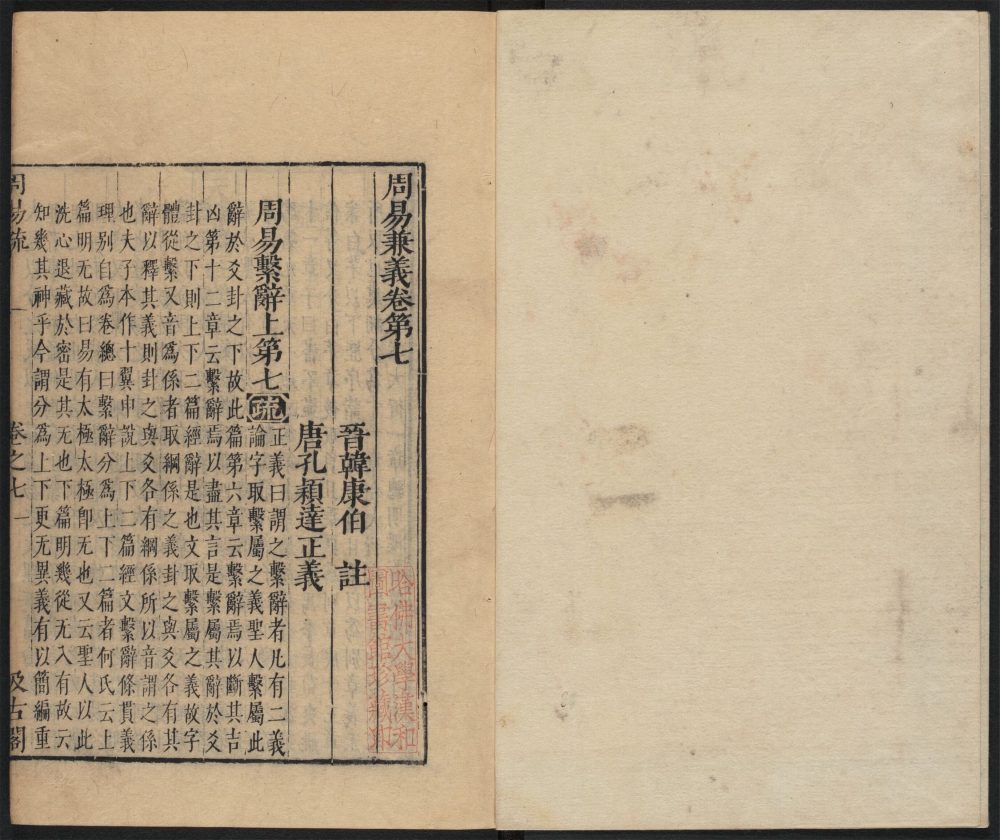 周易兼義卷第七
晉韓康伯 註
唐孔穎達正義
周易繫辭上第七
疏
正義曰謂之繫辭者凡有二義
論字取繫屬之義聖人繫屬此
辭於爻卦之下故此篇第六章云繫辭焉以斷其吉
凶第十二章云繫辭焉以盡其言是繫屬其辭於爻
卦之下則上下二篇經辭是也文取繫屬之義故字
體從繫又音為係者取綱係之義卦之與爻各有其
辭以釋其義則卦之與爻各有綱係所以音謂之係
也夫子本作十翼申說上下二篇經文繫辭條貫義
理別自為卷總曰繫辭分為上下二篇者何氏云上
篇明无故曰易有太極太極卽无也又云聖人以此
洗心退藏於密是其无也下篇明幾從无入有故云
知幾其神乎今謂分為上下更无異義有以簡編重
周易疏 卷之七 一 汲古閣
哈佛大學漢和
圖書館珍藏印